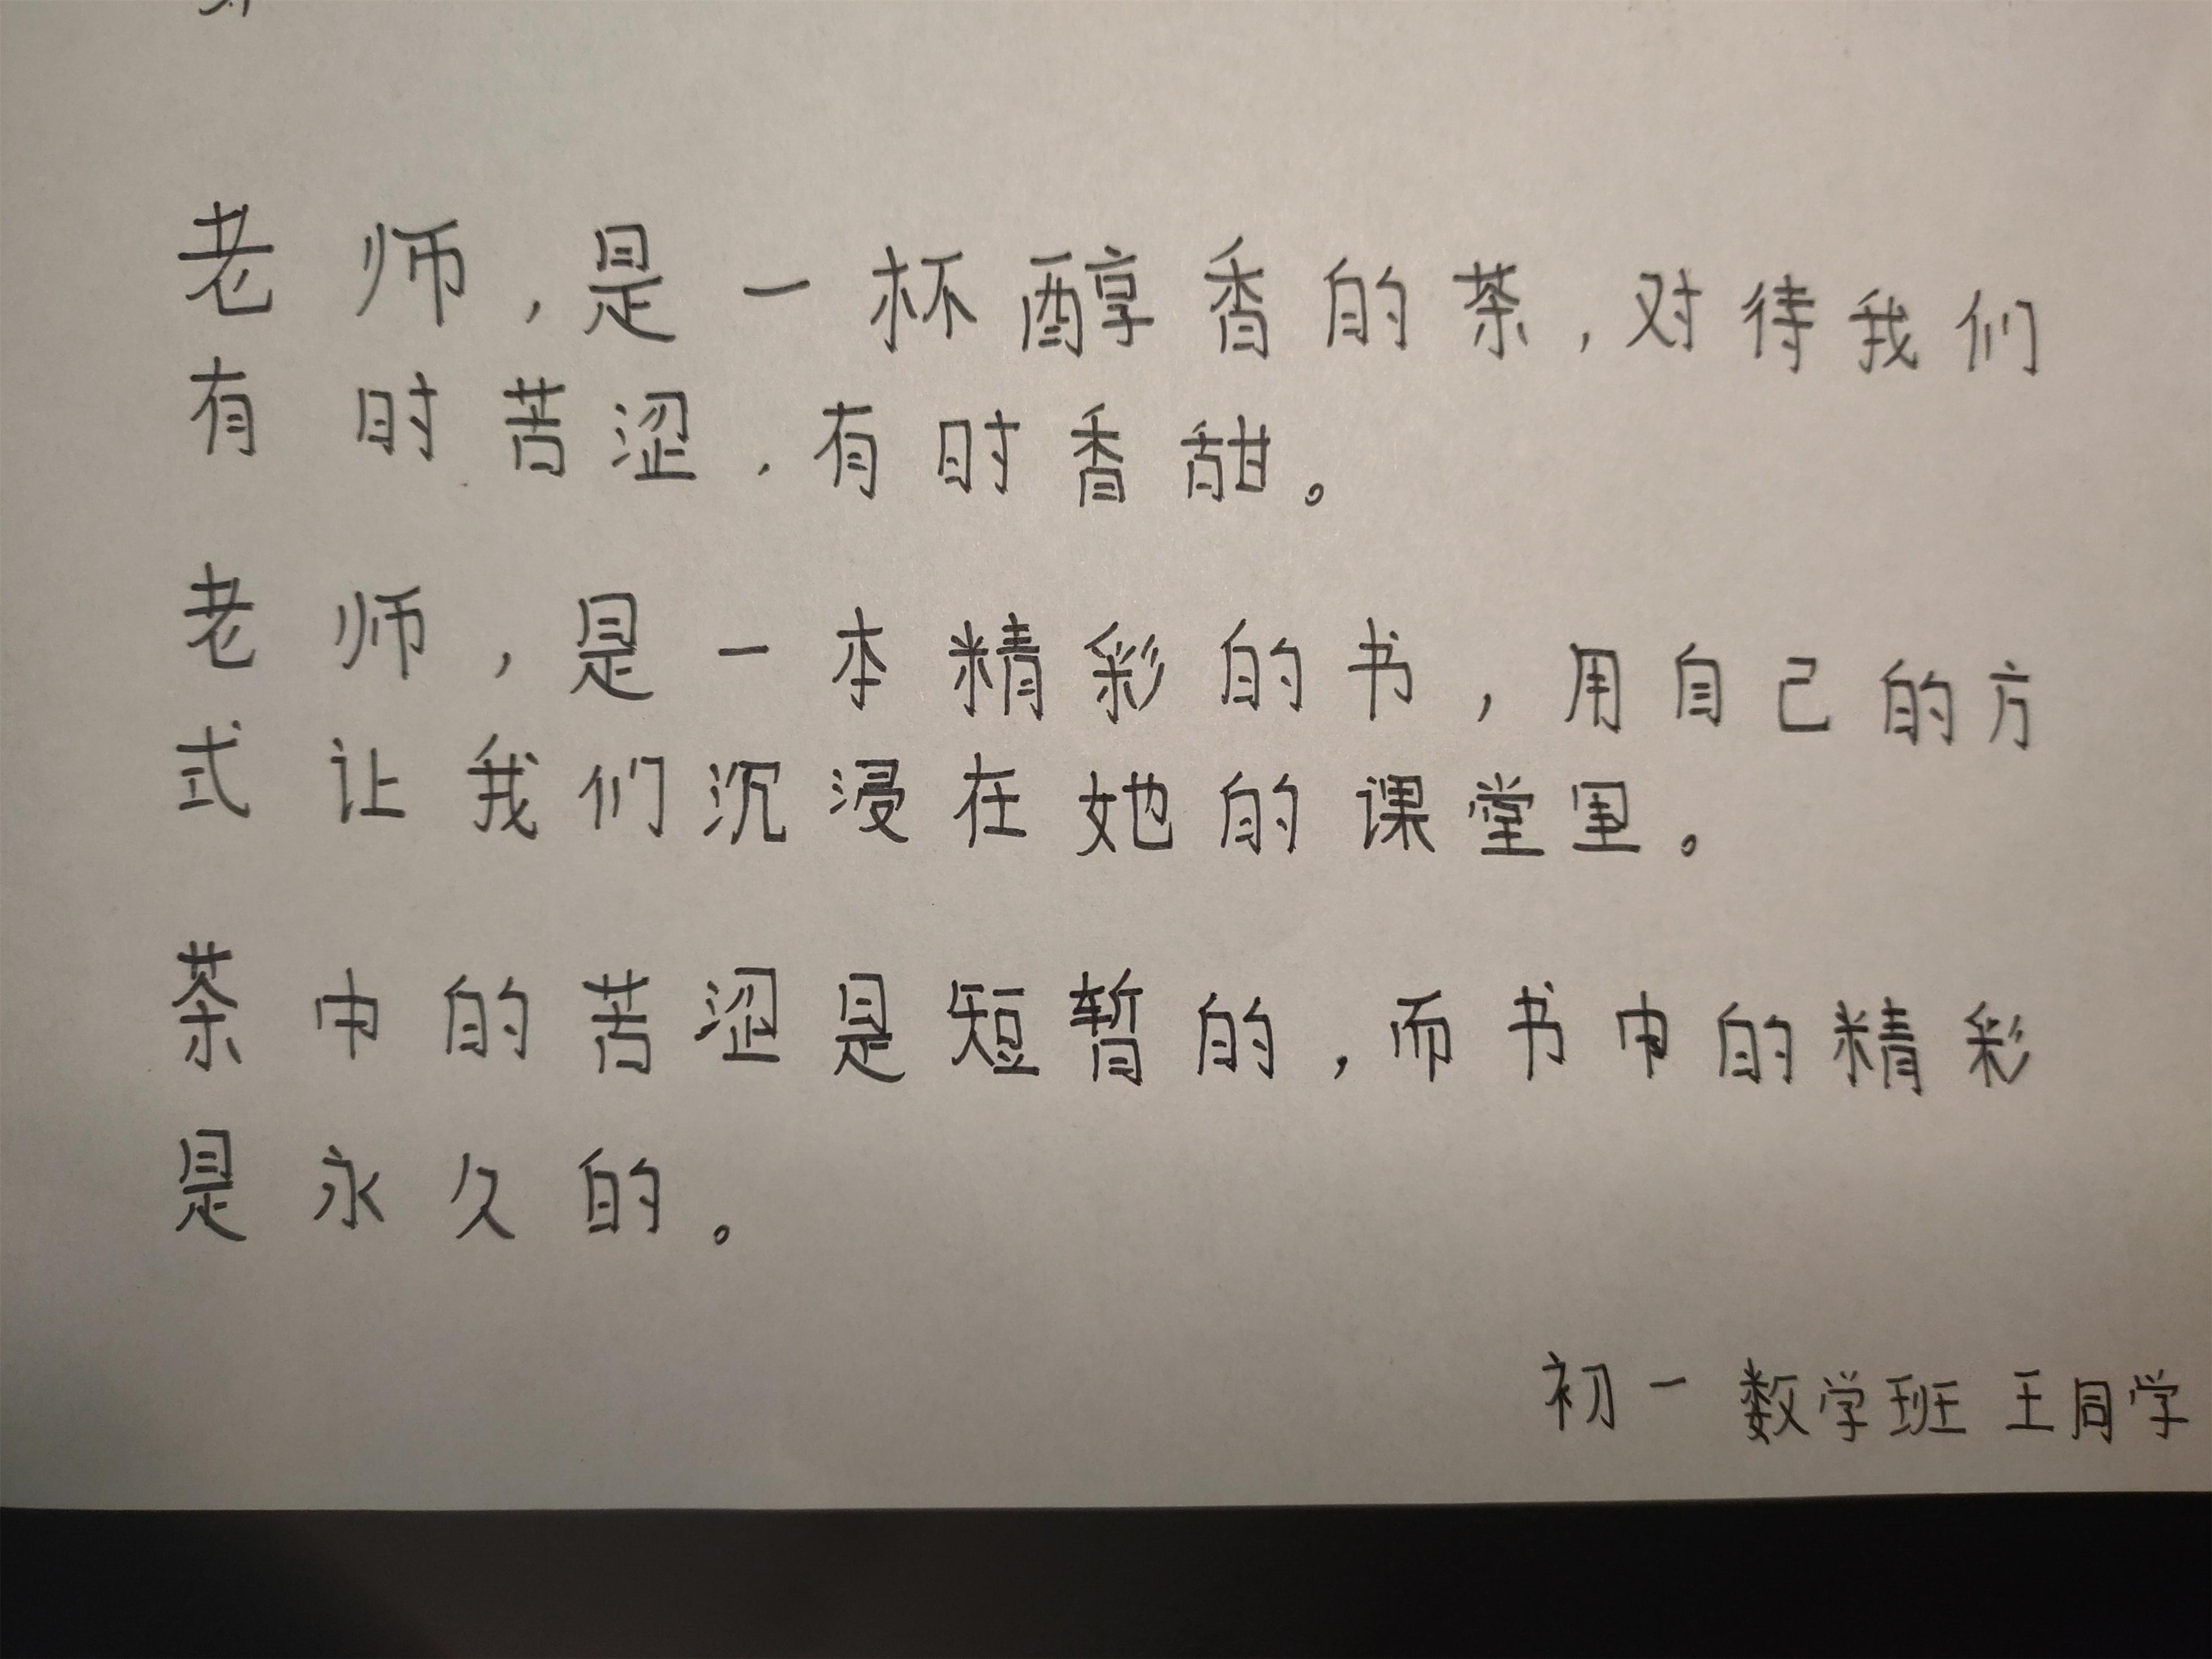 老师，是一杯醇香的茶，对待我们
有时苦涩，有时香甜。
老师，是一本精彩的书，用自己的方
式让我们沉浸在她的课堂里。
茶中的苦涩是短暂的，而书中的精彩
是永久的。
初一数学班 王同学